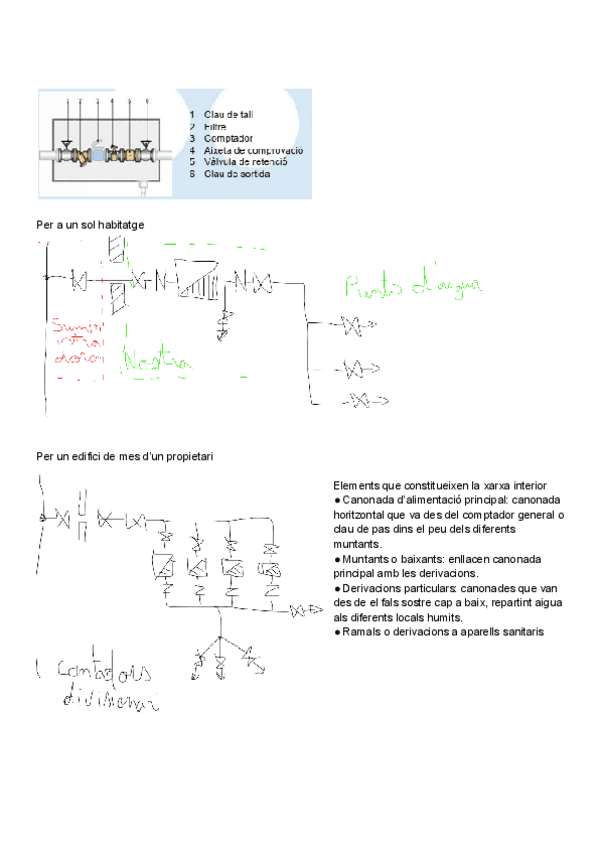 1 2 3 4 5 6
1. Clau de tall
2 Filtre
3 Comptador
4 Aixeta de comprovació
5 Vàlvula de retenció
6 Clau de sortida
Per a un sol habitatge
Punts d'aigua
Sumin
Nostra
Per un edifici de mes d'un propietari
Elements que constitueixen la xarxa interior
● Canonada d'alimentació principal: canonada
horitzontal que va des del comptador general o
clau de pas dins el peu dels diferents
muntants.
● Muntants o baixants: enllacen canonada
principal amb les derivacions.
● Derivacions particulars: canonades que van
des de el fals sostre cap a baix, repartint aigua
als diferents locals humits.
● Ramals o derivacions a aparells sanitaris
contadors